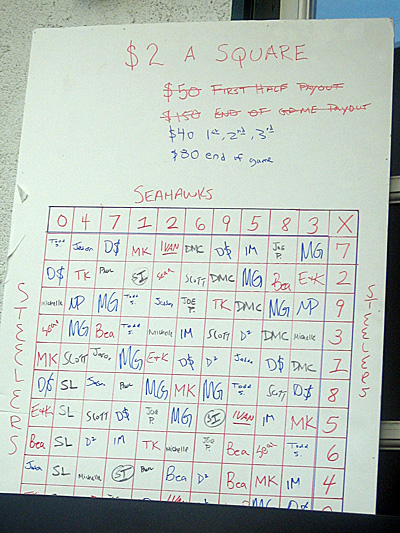 $2 A SQUARE
$50 FIRST HALF PAYOUT
$150 END OF GAME PAYOUT
$40 1st, 2nd, 3rd
$80 end of game
SEAHAWKS
0 4 7 1 2 6 9 5 8 3 X
Todd S. Jason D$ MK IVAN DMC D$ IM JOE P. MG 7
D$ TK Paul SI SCOTT DMC MG Bea E+K 2
Michelle NP MG Todd S. Jason JOE P. TK DMC MG NP 9
MG Bea Todd S. Michelle IM SCOTT D² DMC Michelle 3
MK SCOTT Jason MG E+K D$ D² D$ DMC 1
D$ SL MG MK MG Todd S. SCOTT D$ 8
E+K SL SCOTT D$ JOE P. MG SI IVAN IM MK 5
Bea SL D² IM TK Michelle JOE P. Bea Todd S. 6
SL Michelle SI Bea D² Bea MK IM 4
STEELERS
STEELERS